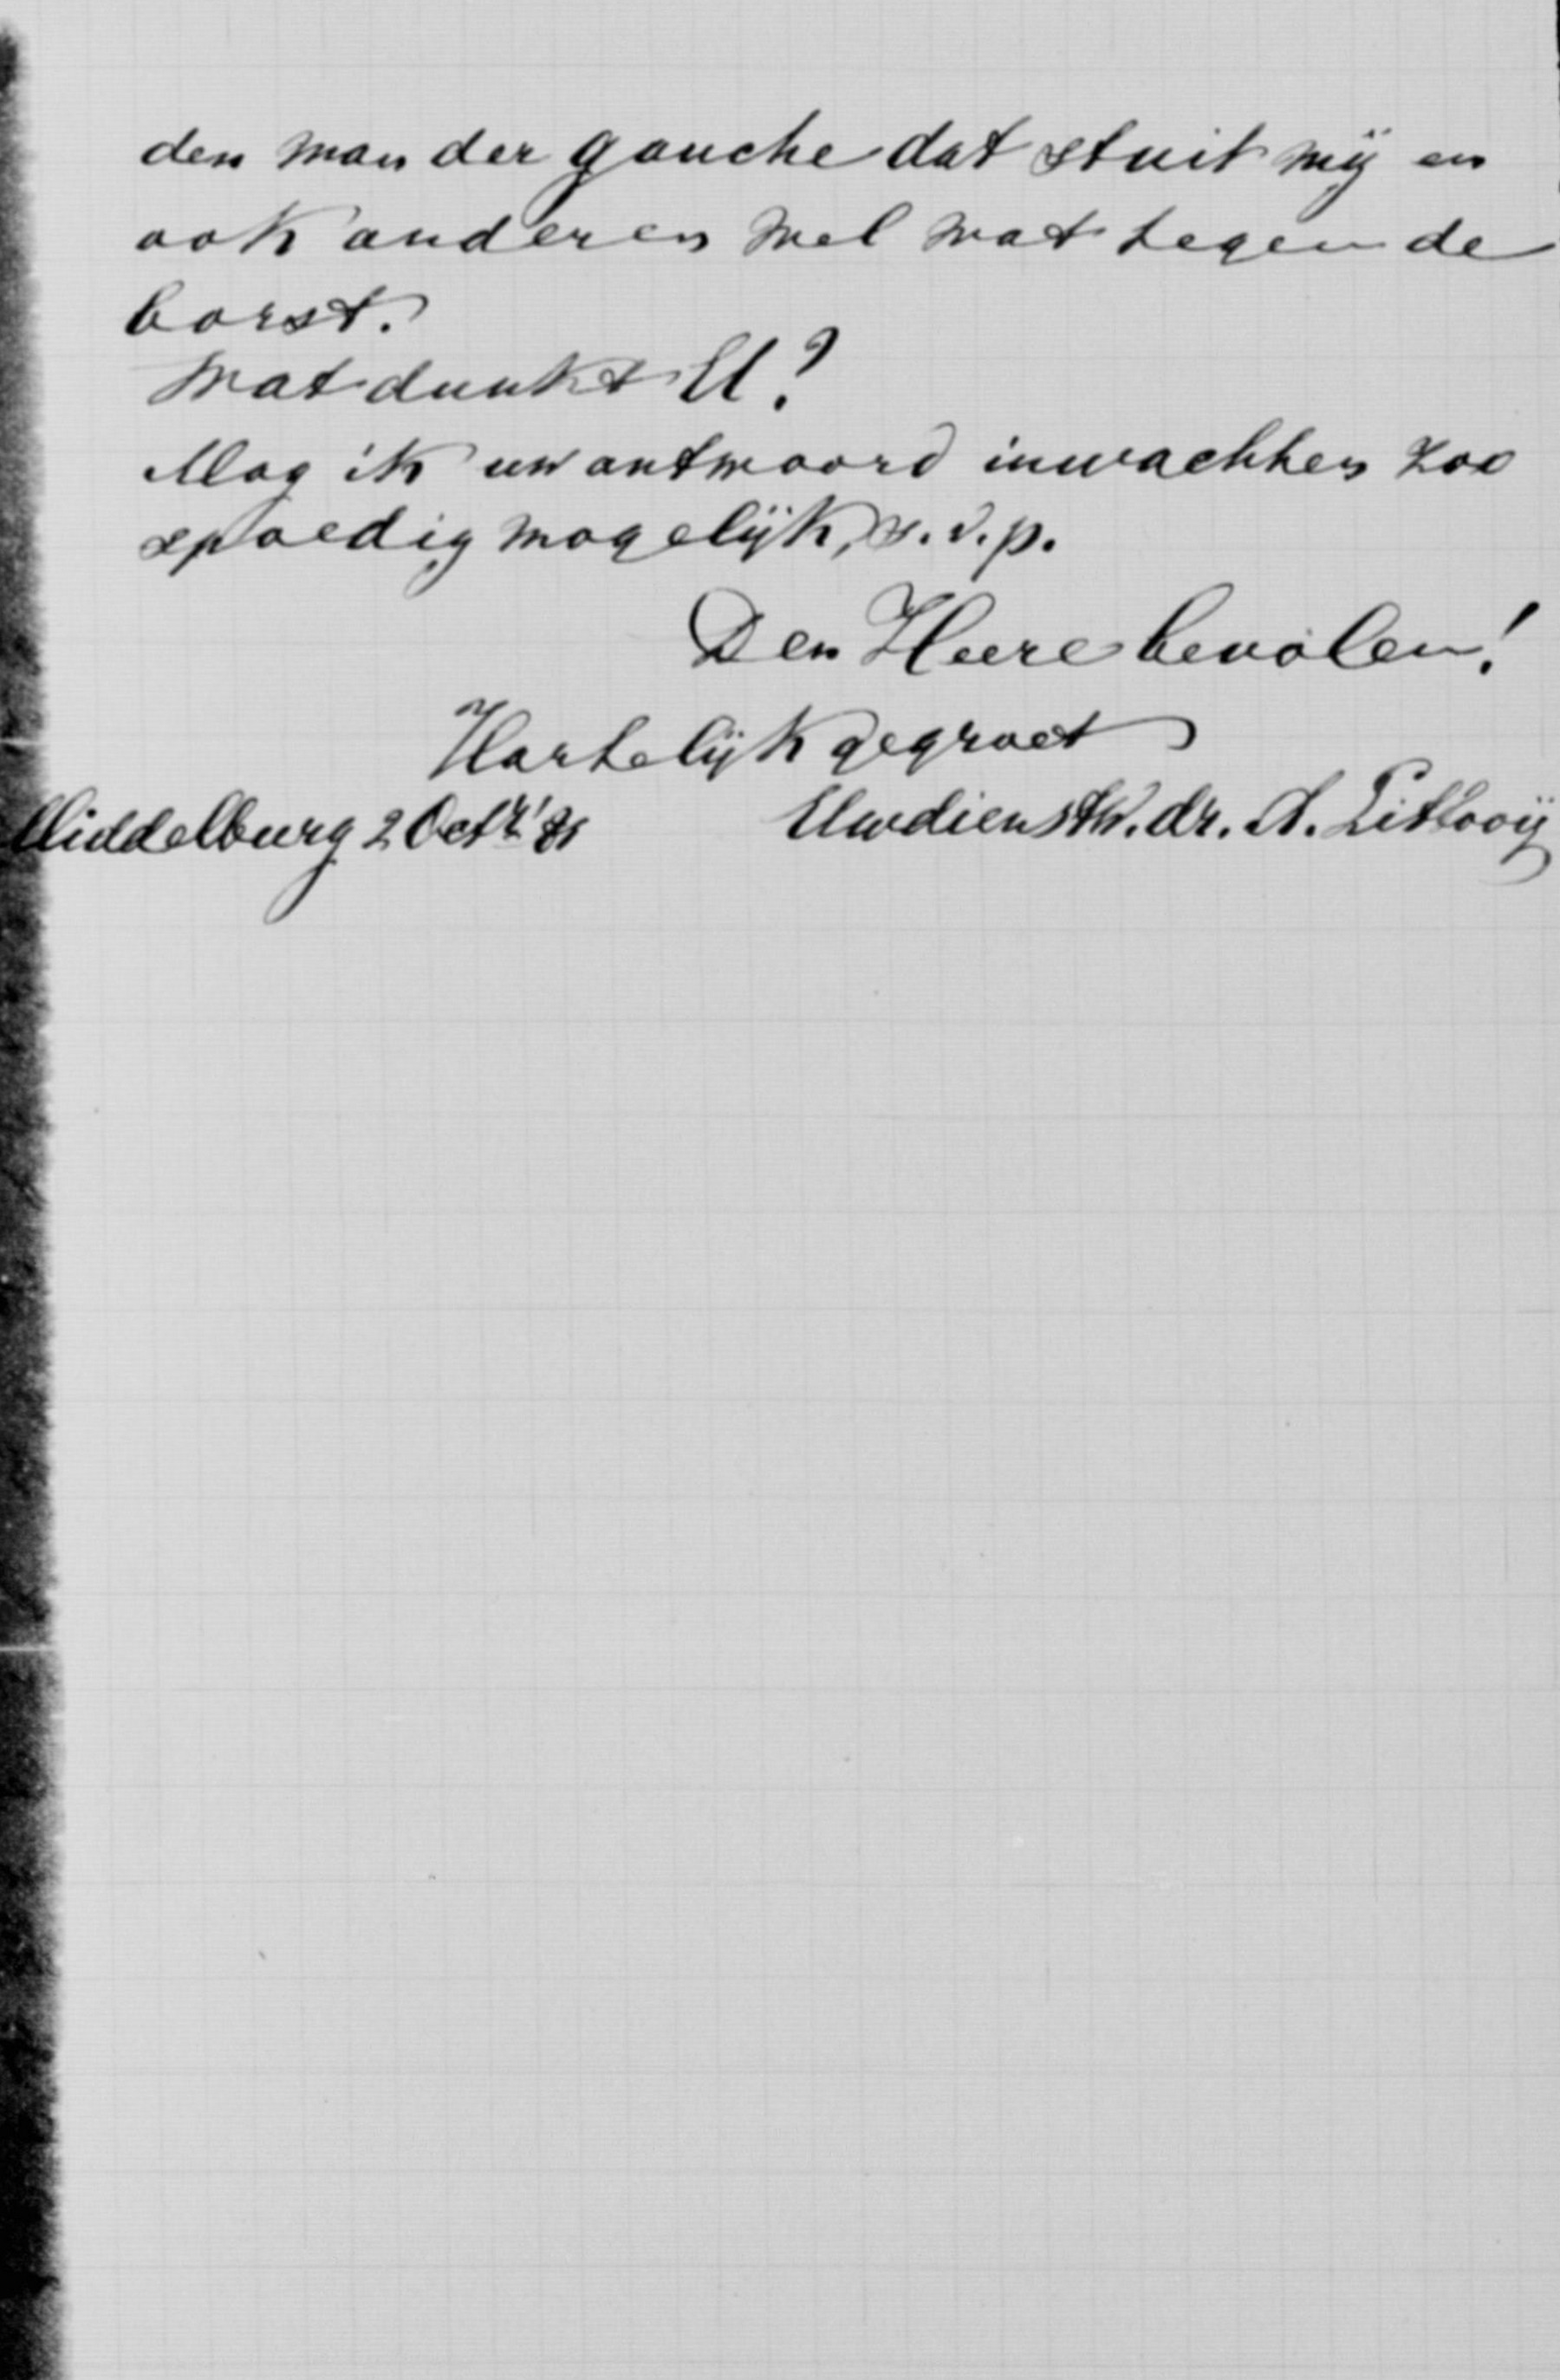 den man der gauche dat stuit mij en
ook anderen wel wat tegen de
borst.
Wat dunkt U?
Mag ik uw antwoord inwachten zoo
spoedig mogelijk, s.v.p.
Den Heere bevolen!
Hartelijk gegroet
Uwdienstw. dr. A. Littooij
Middelburg 2 Octr '